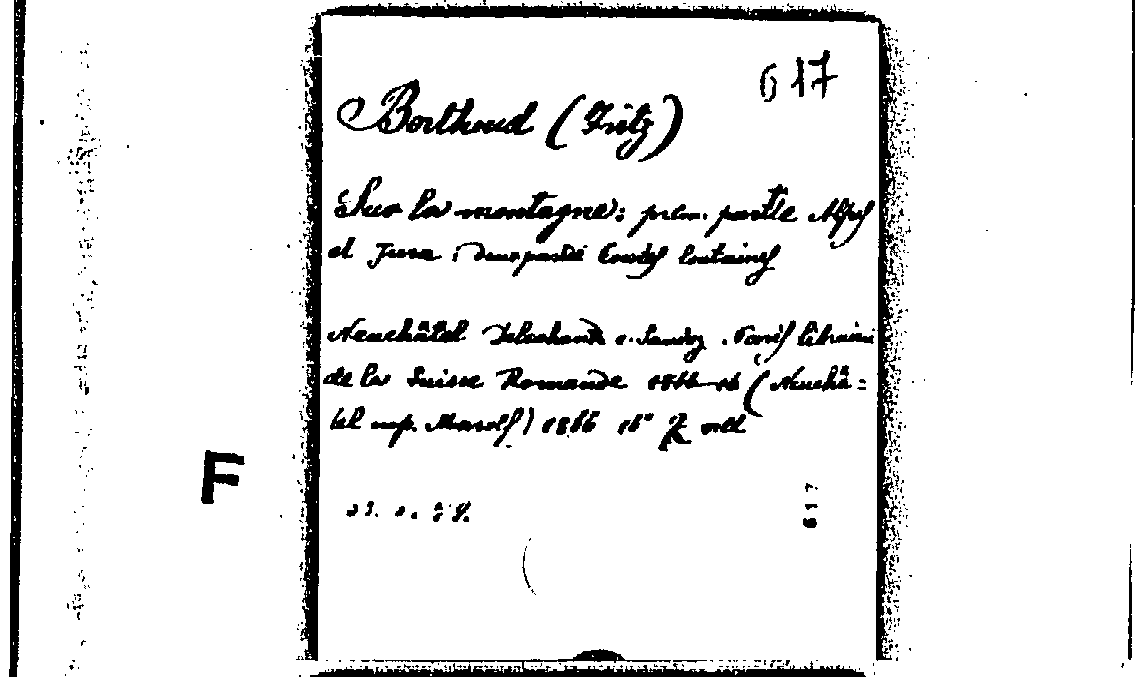 617
Berthoud (Fritz)
Sur la montagne: prem. partie Alpes
et Jura; deux partie Courses lointaines
Neuchâtel Delachaux e. Sandoz. Paris librairie
de la Suisse Romande 1866 16 (Neuchâ=
tel imp. Marolf) 1866 16° 2 vol
F
617